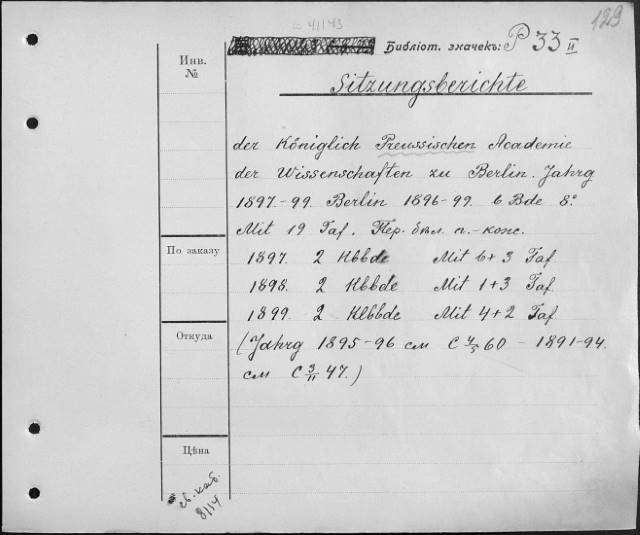 41143
129
Библіот. значекъ: P 33 II
Инв. №
Sitzungsberichte
der Königlich Preussischen Academie
der Wissenschaften zu Berlin. Jahrg
1897-99. Berlin 1896-99. 6 Bde 8º
Mit 19 Taf. Пер. бѣл. п.-кож.
По заказу
1897. 2 Hbbde Mit 6+3 Taf
1898. 2 Hbbde Mit 1+3 Taf
1899. 2 Hbbde Mit 4+2 Taf
Откуда
(Jahrg 1895-96 см C 4/5 60 - 1891-94.
см C 3/II 47.)
Цѣна
св. каб.
8/14